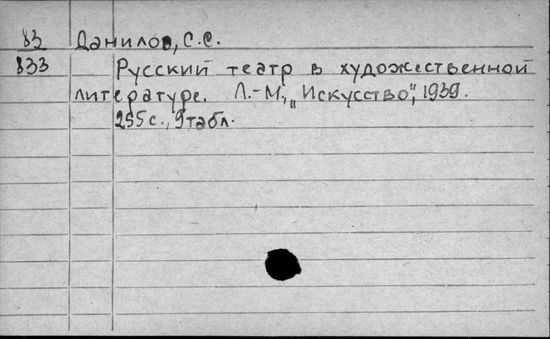 83 Данилов, С.С.
833 Русский театр в художественной
литературе. Л.-М., „Искусство", 1939.
255 с., 9 табл.